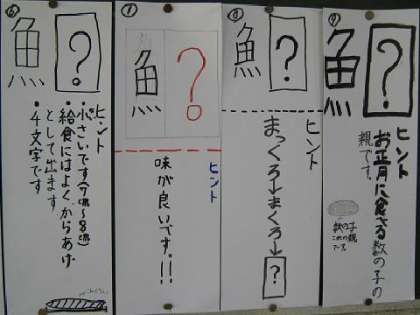 ⑥
魚?
ヒント
・小さいです(7㎝~8㎝)
・給食にはよくからあげ
として出ます
・4文字です
魚?
ヒント
味が良いです。!!
⑧
魚?
ヒント
まっくろ→まくろ→?
⑨
魚?
ヒント
お正月に食べる数の子の
親です。
数の子
これの親